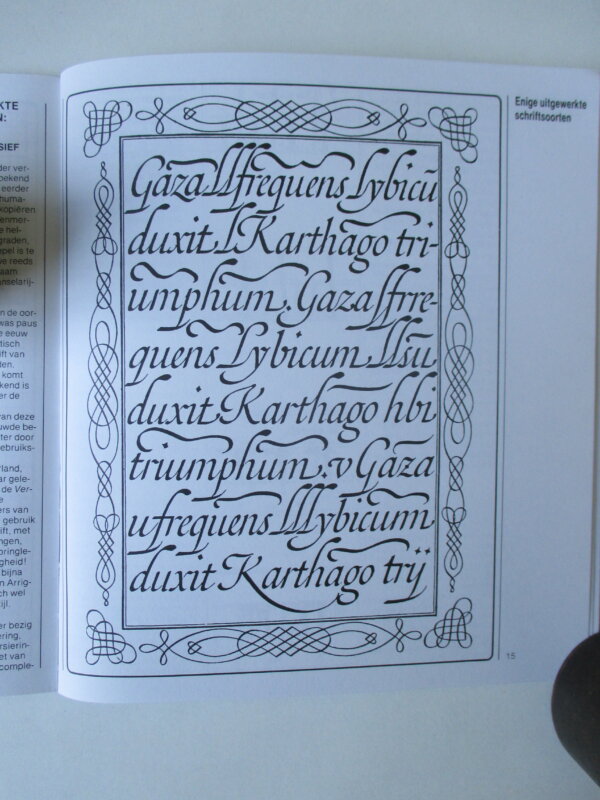 KTE
N:
SIEF
der ver-
bekend
eerder
huma-
kopiëren
enmer-
e hel-
graden,
epel is te
ve reeds
naam
nselarij-
n de oor-
was paus
e eeuw
tisch
ift van
den,
komt
kend is
er de
van deze
uwde be-
ter door
ebruiks-
rland,
ar gele-
de Ver-
e
ers van
gebruik
ift, met
ngen,
pringle-
gheid!
bijna
n Arrig-
ch wel
ijl.
er bezig
ering,
rsierin-
et van
comple-
Gaza frequens Lybicũ
duxit Karthago tri-
umphum. Gaza frre-
quens Lybicum
duxit Karthago hbi
triumphum. v Gaza
ufrequens lybicum
duxit Karthago trÿ
Enige uitgewerkte
schriftsoorten
15